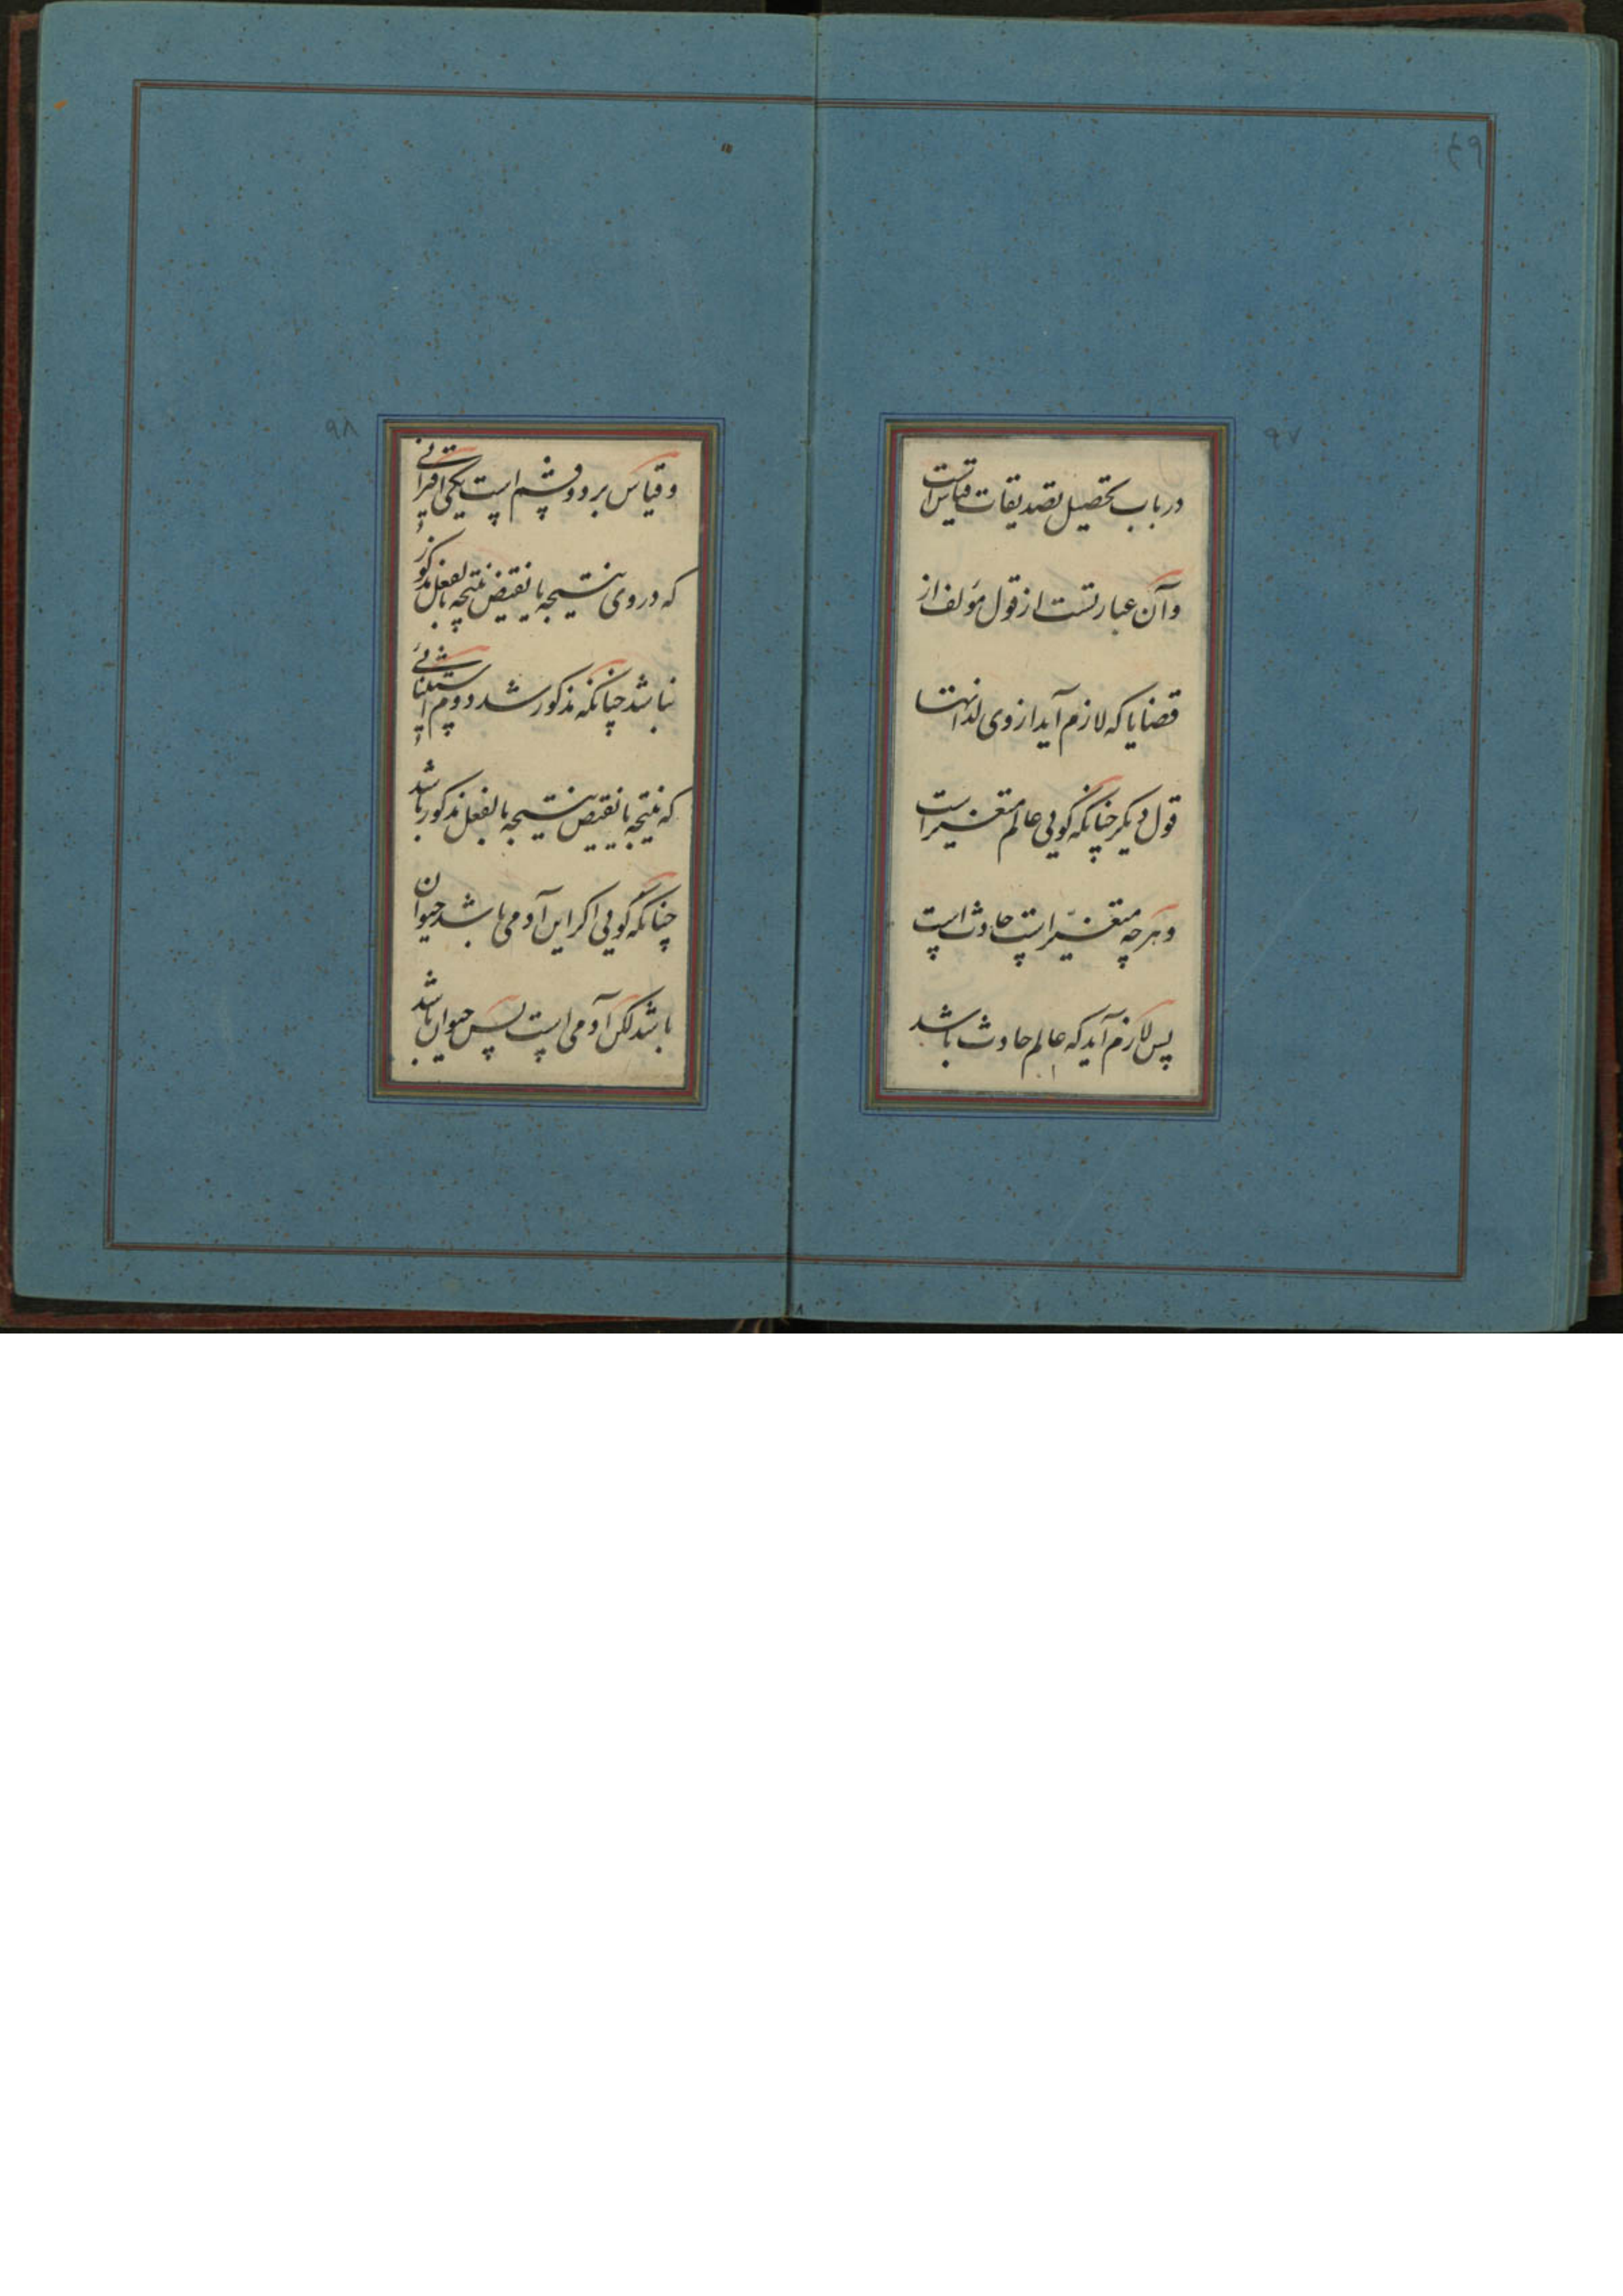 ۴۹
۹۷
در باب تحصیل تصدیقات قیاس است
و آن عبارتست از قول مؤلف از
قضایا که لازم آید از وی لذاتها
قول دیکر چنانکه کویی عالم متغیر است
و هر چه متغیر است حادث است
پس لازم آید که عالم حادث باشد
۹۸
و قیاس بر دو قسم است یکی اقترانی
که در وی نتیجه یا نقیض نتیجه بالفعل مذکور
نباشد چنانکه مذکور شد دووم استثنائی
که نتیجه یا نقیض نتیجه بالفعل مذکور باشد
چنانکه کویی اکر این آدمی باشد حیوان
باشد لکن آدمی است پس حیوان باشد